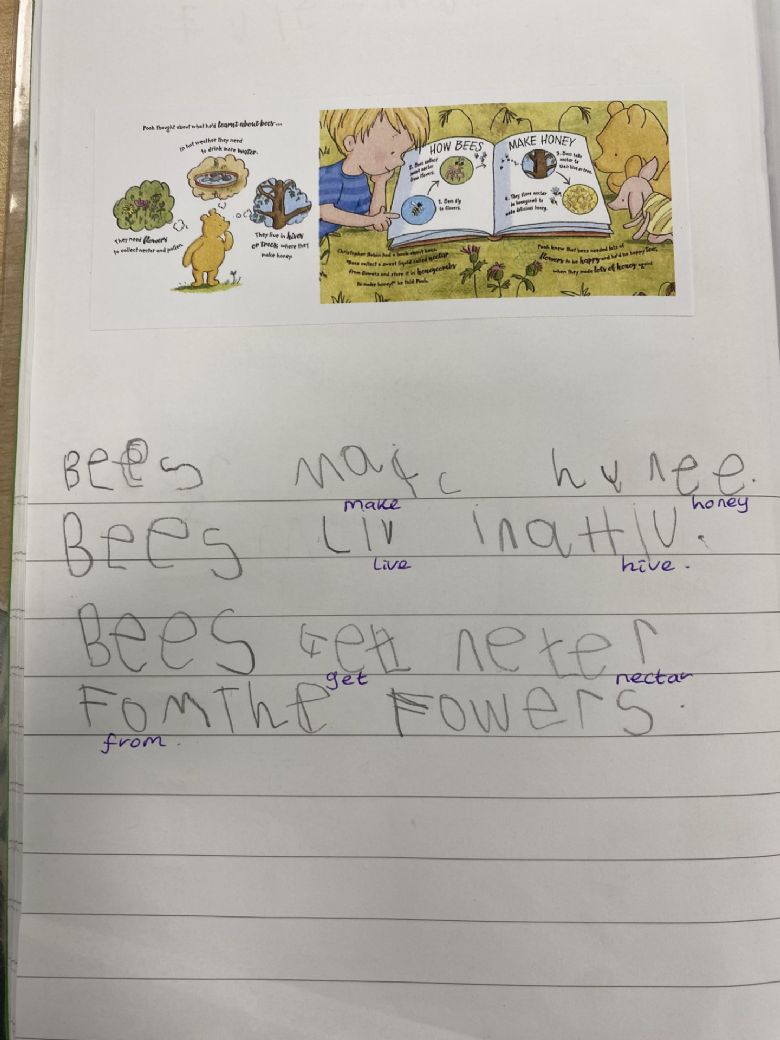 Pooh thought about what he'd learnt about bees...
In hot weather they need
to drink more water.
They need flowers
to collect nectar and pollen.
They live in hives
or trees where they
make honey.
HOW BEES
2. Bees collect
sweet nectar
from flowers.
1. Bees fly
to flowers.
MAKE HONEY
3. Bees take
nectar to
their hive or tree.
4. They store nectar
in honeycomb to
make delicious honey.
Christopher Robin had a book about bees.
"Bees collect a sweet liquid called nectar
from flowers and store it in honeycombs
to make honey!" he told Pooh.
Pooh knew that bees needed lots of
flowers to be happy and he'd be happy too,
when they made lots of honey again!
Bees mak hunee.
make honey
Bees Liv inaHiv.
live hive.
Bees Get neter
get nectar
FomThe Fowers.
from.